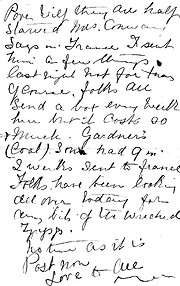 Poor Bill they are half
starved Mrs. Conway
says in France I sent
him a few things
last night not for tea
of course, folks all
send a box every week
here but it costs so
much. Gardner's
(Coal) Tom had 9 in.
2 weeks sent to France
Folks have been looking
all over today for
any bits of the wrecked
Zepps.
no time as it is
Post now
Love to all